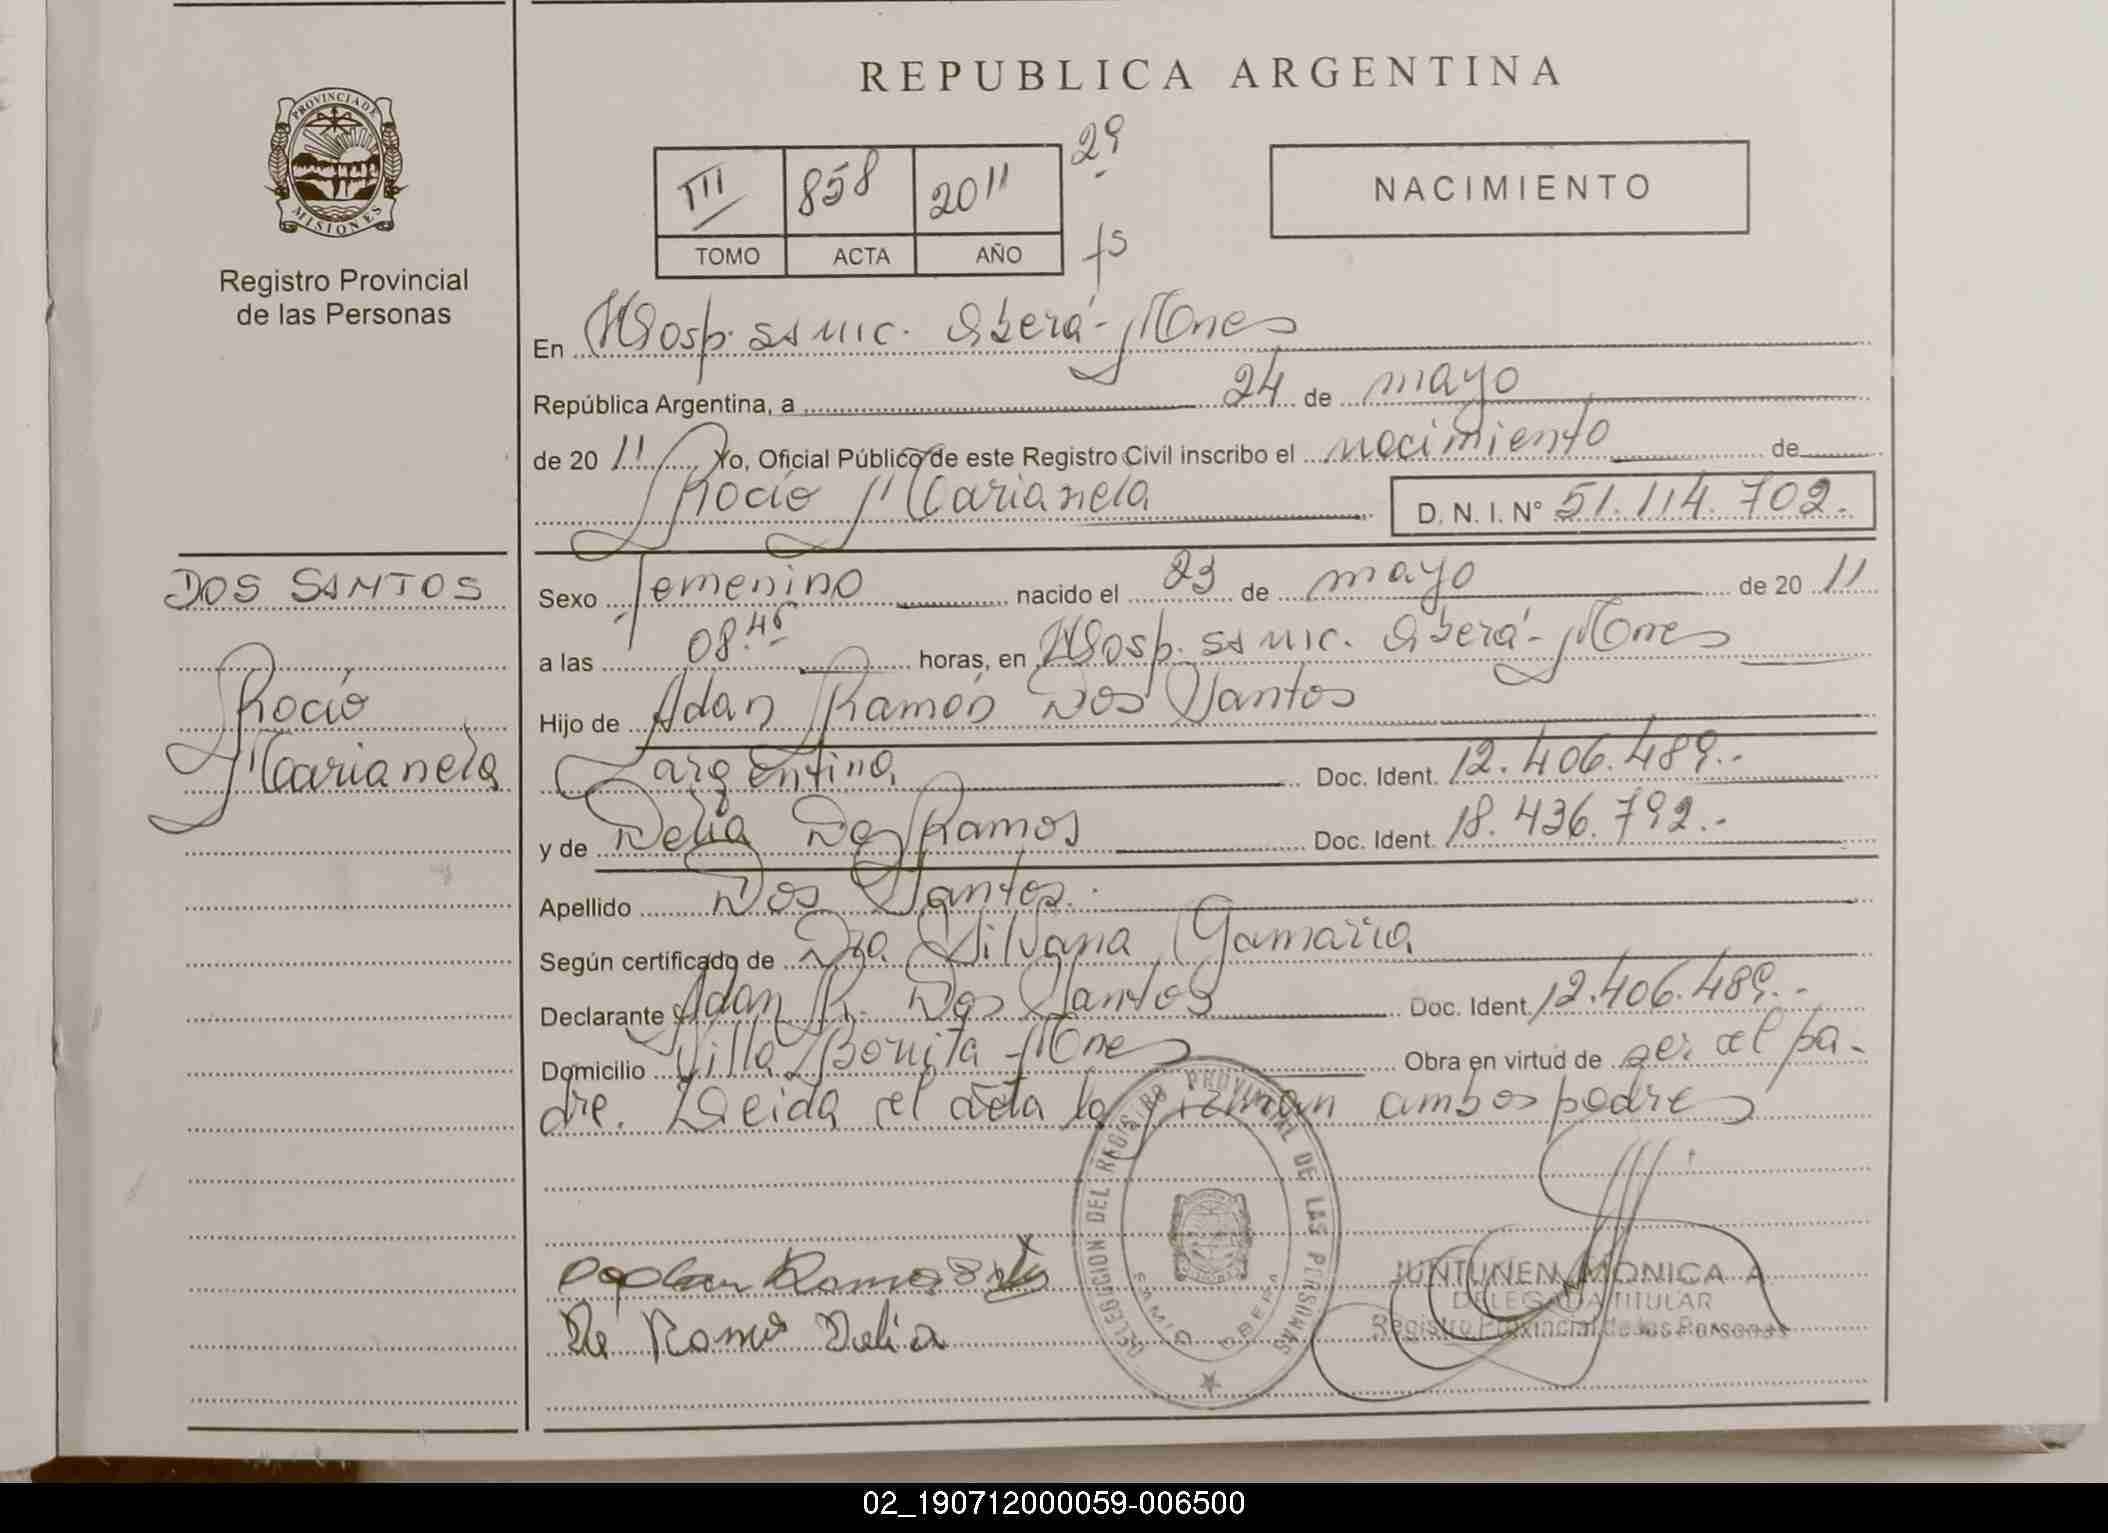 REPUBLICA ARGENTINA
PROVINCIA DE MISIONES
Registro Provincial
de las Personas
III 858 2011 29
TOMO ACTA AÑO fs
NACIMIENTO
En Hosp. SAMIC. Oberá-Mnes
República Argentina, a 24 de mayo
de 20 11 Yo, Oficial Público de este Registro Civil inscribo el nacimiento de
Rocío Marianela D. N. I. Nº 51.114.702.-
DOS SANTOS
Rocío
Marianela
Sexo femenino nacido el 23 de mayo de 20 11
a las 08.45 horas, en Hosp. SAMIC. Oberá-Mnes
Hijo de Adan Ramón Dos Santos
argentina Doc. Ident. 12.406.489.-
y de Delia De Ramos Doc. Ident. 18.436.792.-
Apellido Dos Santos.
Según certificado de Dra Silvana Gamarra
Declarante Adan R. Dos Santos Doc. Ident. 12.406.489.-
Domicilio Villa Bonita-Mnes Obra en virtud de ser el pa-
dre. Leida el acta la firman ambos padres
DELEGACION DEL REGISTRO PROVINCIAL DE LAS PERSONAS
SAMIC OBERA
De Ramos Delia
JUNTUNEN MONICA A
DELEGADA TITULAR
Registro Provincial de las Personas
02_190712000059-006500